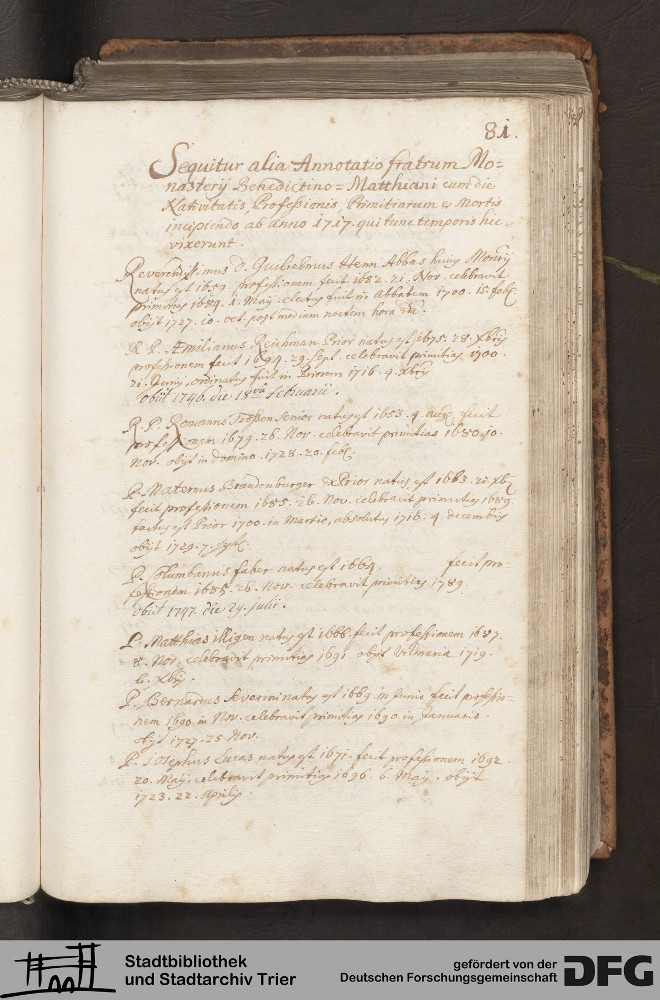 81.
Sequitur alia Annotatio fratrum Mo=
nasterij Benedictino = Matthiani cum die
Nativitatis, Professionis, Primitiarum et Mortis
incipiendo ab anno 1717. qui tunc temporis hic
vixerunt.
Reverendissimus D. Guilielmus Henn Abbas huius Monrij
natus est 1659. professionem fecit 1682. 21. Nov. celebravit
primitias 1689. 1. Maij electus fuit in Abbatem 1700. 15. feb.
obijt 1727. 10. oct. post mediam noctem hora
R. P. Æmilianus Reichman Prior natus est 1675. 28. Xbris
professionem fecit 1694. 29. sept. celebravit primitias 1700.
21. Junij, ordinatus fuit in Priorem 1716. 4. Xbris
obiit 1746. die 18va februarii.
R. P. Romanus Trossen Senior natus est 1653. 4. fecit
professionem 1679. 26. Nov. celebravit primitias 1680. 10.
Nov. obijt in domino. 1728. 20. feb.
P. Maternus Brandenburger Prior natus est 1663. 21 Xb
fecit professionem 1685. 26. Nov. celebravit primitias 1689.
factus est Prior 1700. in Martio, absolutus 1716. 4. decembris
obijt 1729. 7.
P. Columbanus faber natus est 1664. fecit pro=
fessionem 1685. 26. Nov. celebravit primitias 1789.
obiit 1747. die 24. julii.
P. Matthias illigen natus est 1666. fecit professionem 1687.
8. Nov. celebravit primitias 1691. obijt Vilmariæ 1719.
6. Xbris.
P. Bernardus Severini natus est 1669. in Junio fecit professio=
nem 1690. in Nov. celebravit primitias 1690. in Januario.
obijt 1727. 25. Nov.
P. Josephus Lucas natus est 1671. fecit professionem 1692.
20. Maij. celebravit primitias 1696. 6. Maij. obijt
1723. 22. Aprilis.
Stadtbibliothek
und Stadtarchiv Trier
gefördert von der
Deutschen Forschungsgemeinschaft
DFG